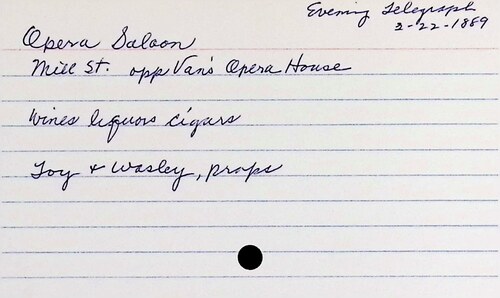 Evening Telegraph
3-22-1889
Opera Saloon
Mill St. opp Van's Opera House
Wines liquors cigars
Toy & Wasley, props